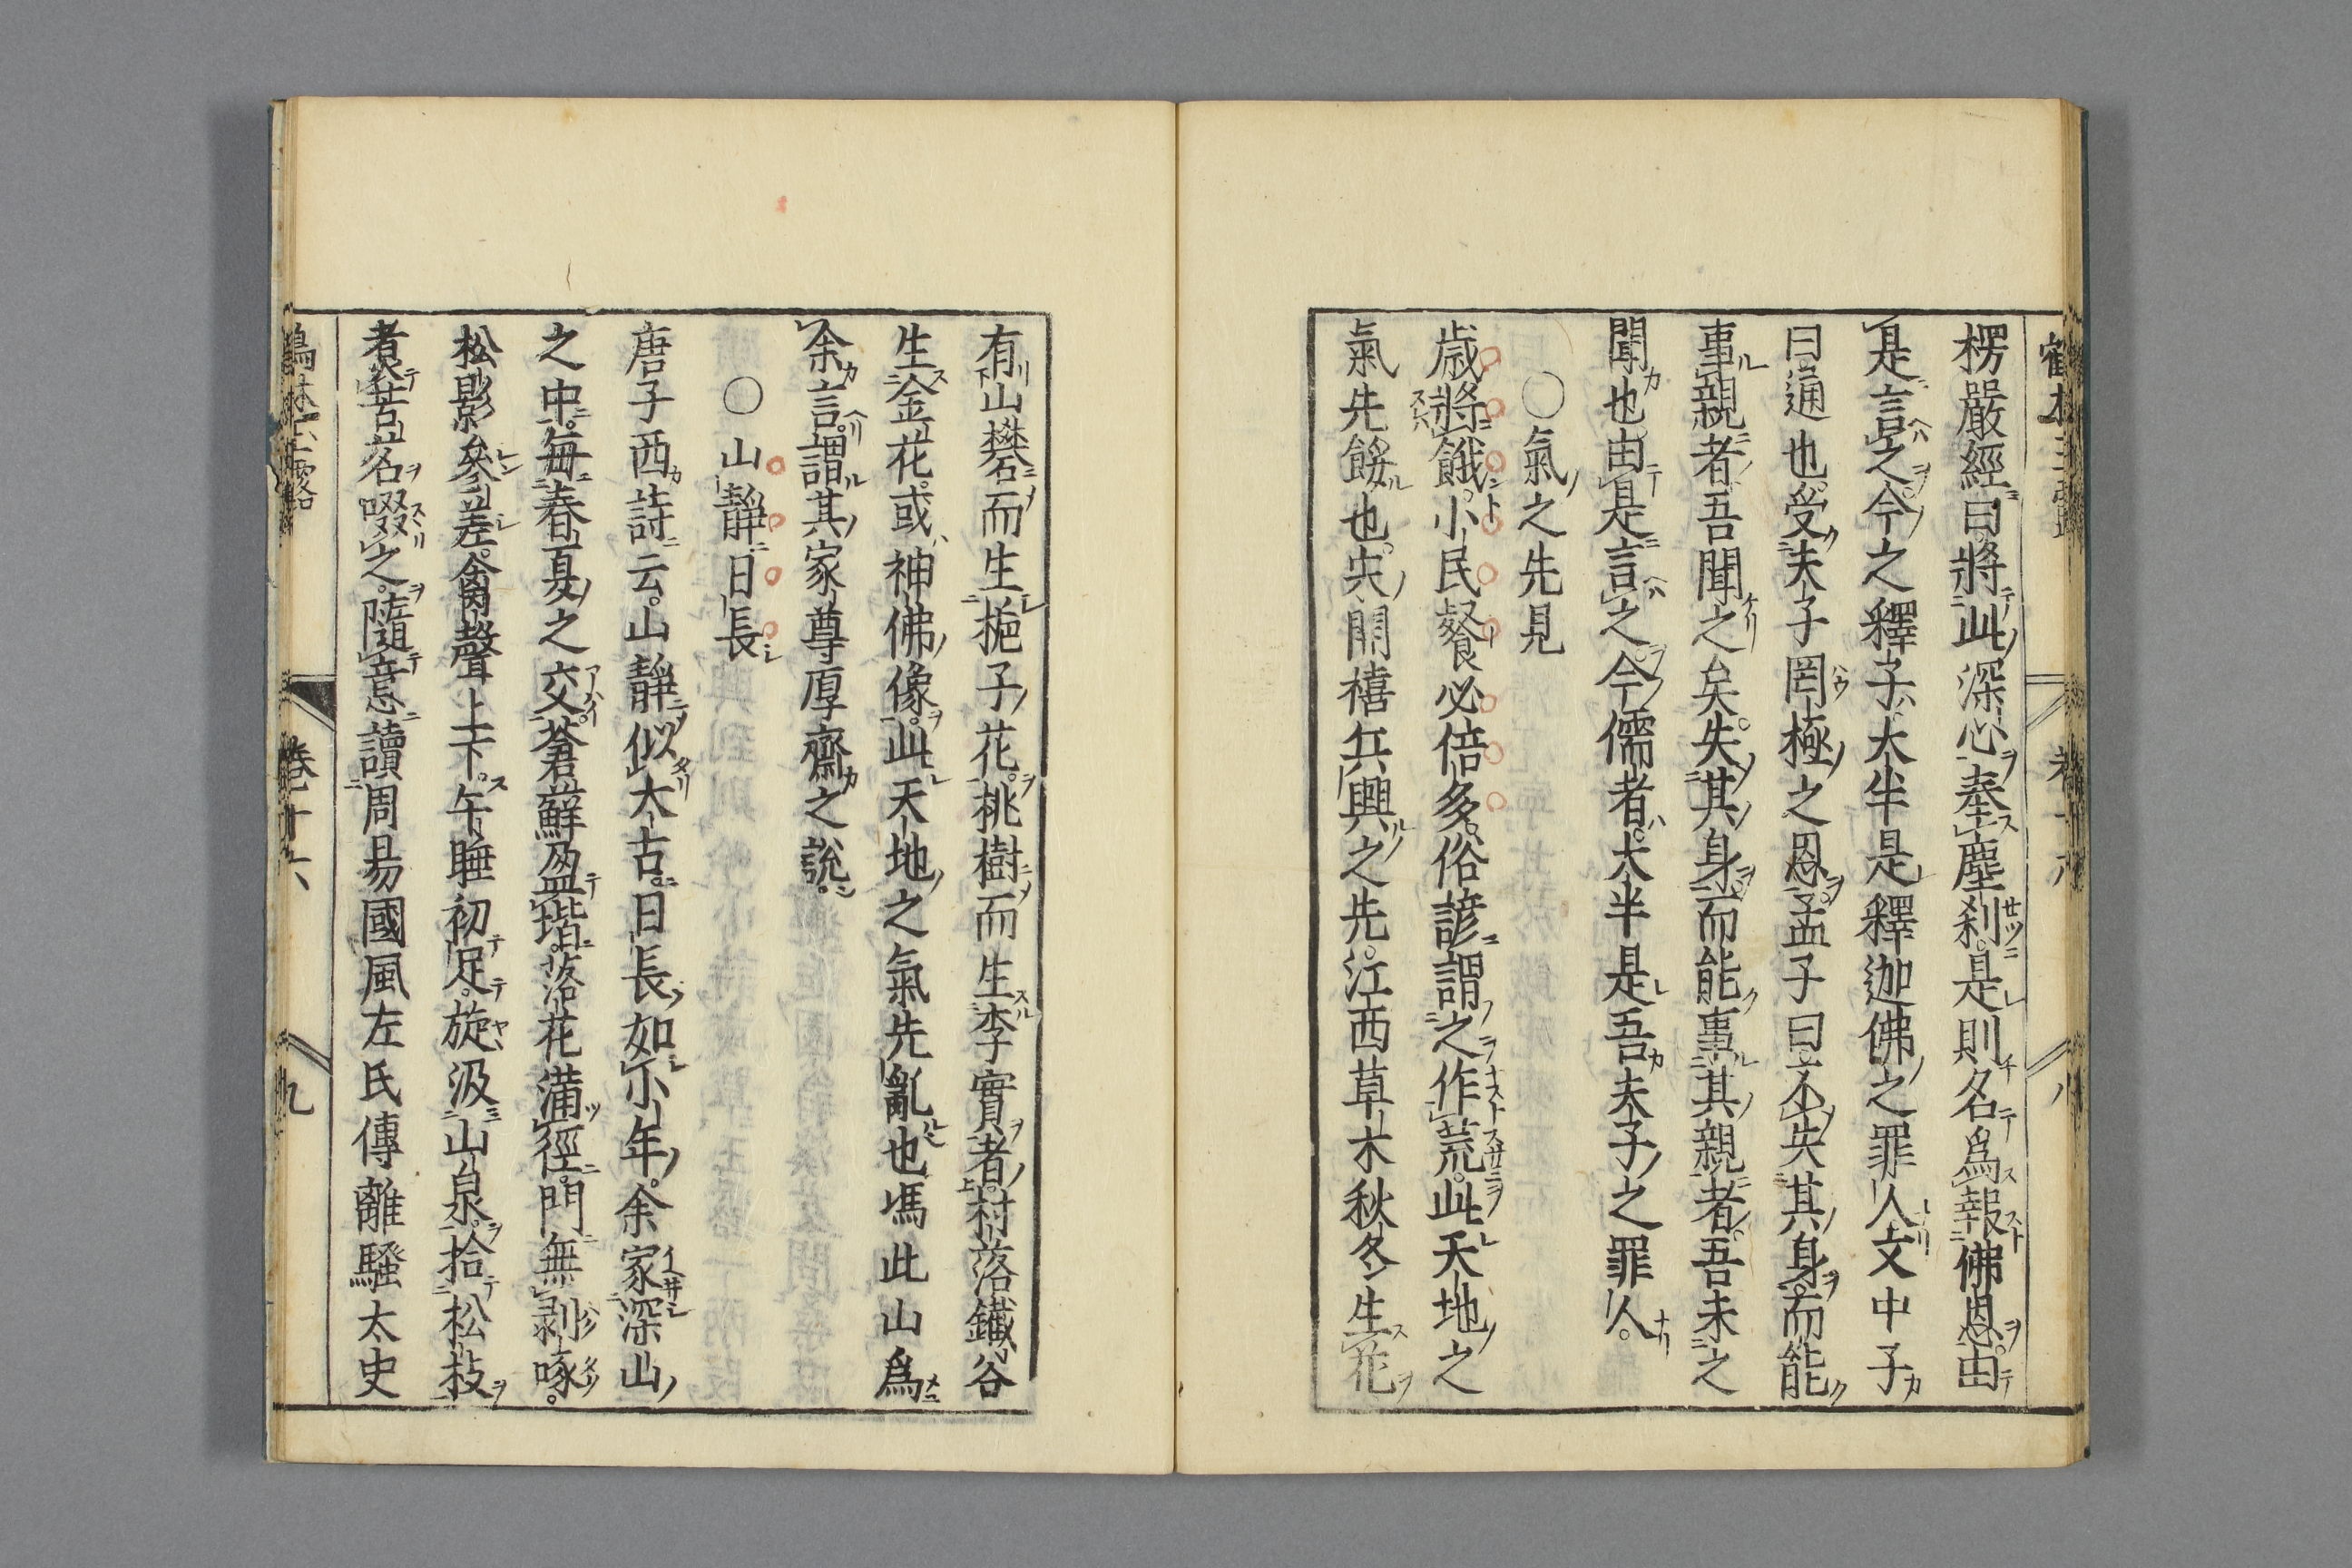 楞嚴經曰將此深心奉塵刹是則名爲報佛恩由
是言之今之釋子大半是釋迦佛之罪人文中子
曰通也受夫子罔極之恩孟子曰不失其身而能
事親者吾聞之矣失其身而能事其親者吾未之
聞也由是言之今儒者大半是吾夫子之罪人
〇氣之先見
歳將餓小民餐必倍多俗諺謂之作荒此天地之
氣先餒也宋開禧兵興之先江西草木秋冬生花
有山礬而生梔子花桃樹而生李實者村落鐵谷
生金花或神佛像此天地之氣先亂也馮此山爲
余言謂其家尊厚齋之說
〇山靜日長
唐子西詩云山靜似太古日長如小年余家深山
之中每春夏之交蒼蘚盈堦落花滿徑門無剥啄
松影參差禽聲上下午睡初足旋汲山泉拾松枝
煮苦茗啜之隨意讀周易國風左氏傳離騷太史
鶴林玉露 卷十六 九